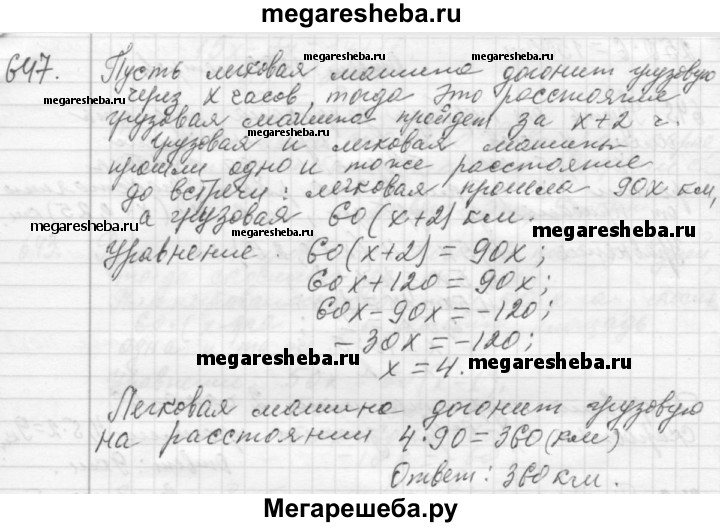 megaresheba.ru
647. Пусть легковая машина догонит грузовую
megaresheba.ru
megaresheba.ru
через x часов, тогда это расстояния
megaresheba.ru
грузовая машина пройдет за x+2 ч.
Грузовая и легковая машины
прошли одно и тоже расстояние
до встречи: легковая прошла 90x км,
а грузовая 60(x+2) км.
megaresheba.ru
megaresheba.ru
megaresheba.ru
Уравнение. 60(x+2) = 90x;
60x+120 = 90x;
60x-90x=-120;
megaresheba.ru
-30x=-120;
megaresheba.ru
x=4.
megaresheba.ru
Легковая машина догонит грузовую
на расстоянии 4·90=360(км)
Ответ: 360км.
Мегарешеба.ру